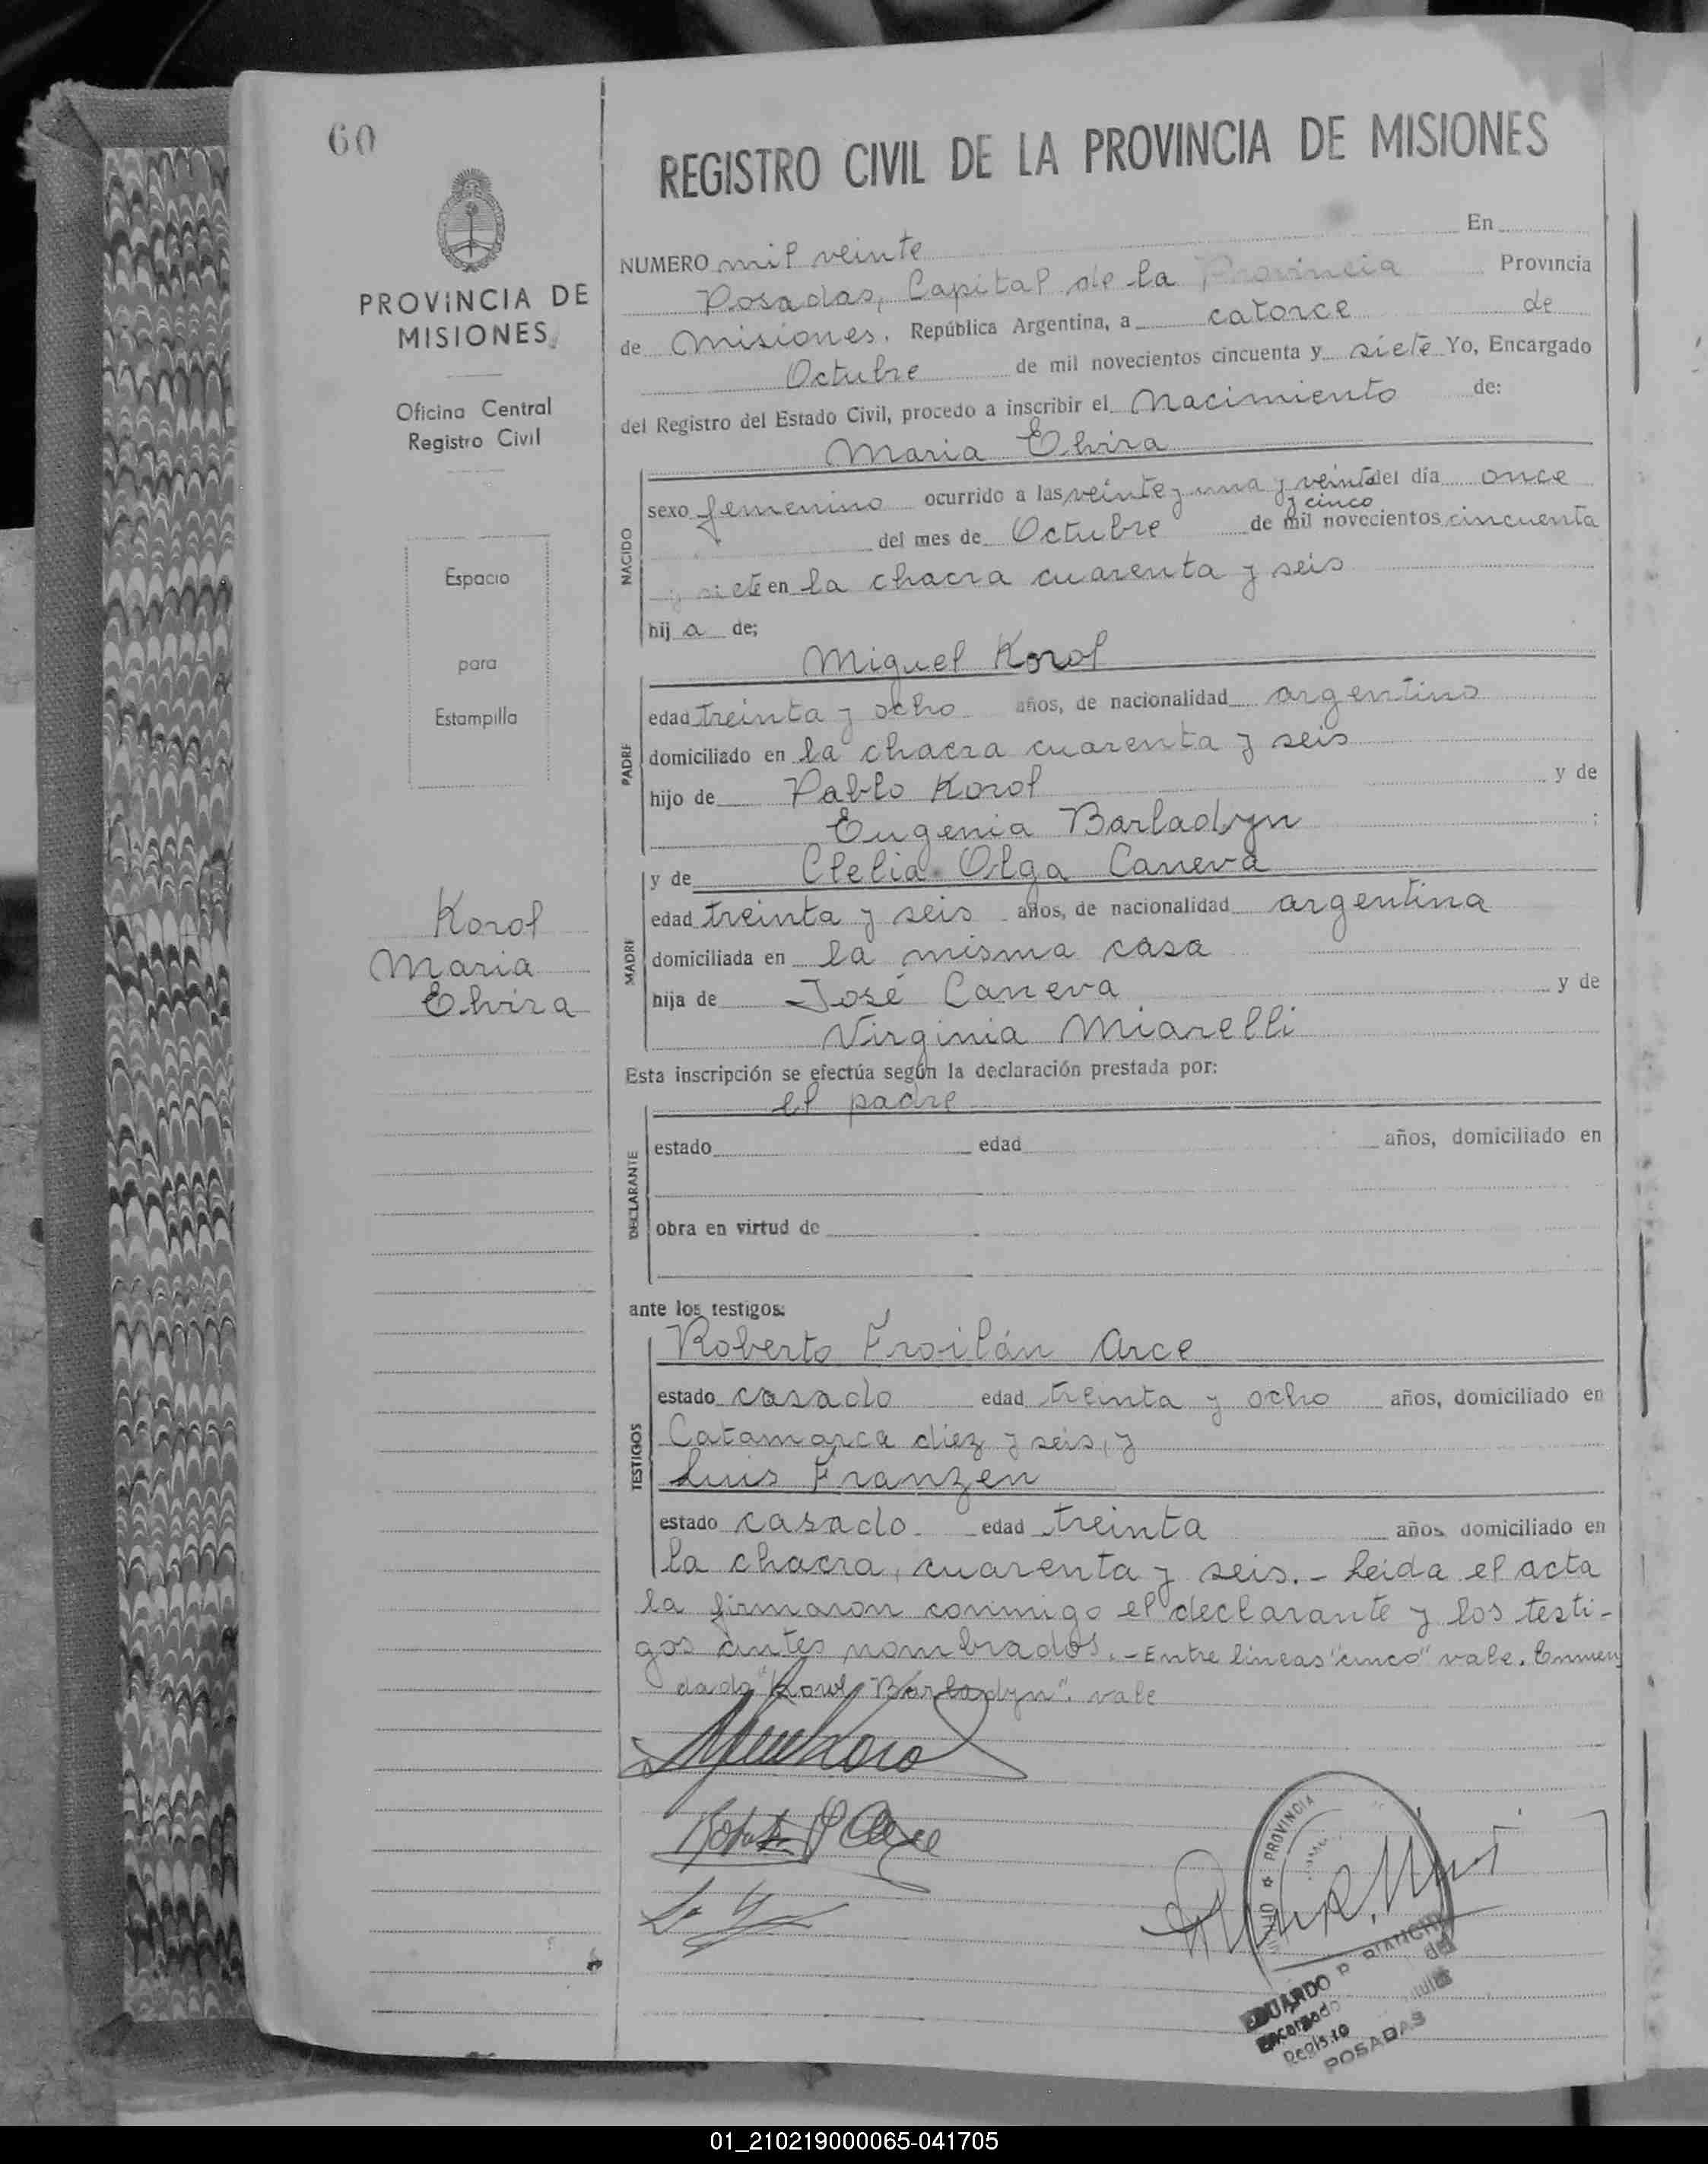 60
PROVINCIA DE
MISIONES
Oficina Central
Registro Civil
Espacio
para
Estampilla
Korol
Maria
Elvira
REGISTRO CIVIL DE LA PROVINCIA DE MISIONES
NUMERO mil veinte En
Posadas, Capital de la Provincia Provincia
de Misiones. República Argentina, a catorce de
Octubre de mil novecientos cincuenta y siete Yo, Encargado
del Registro del Estado Civil, procedo a inscribir el Nacimiento de:
Maria Elvira
NACIDO
sexo femenino ocurrido a las veinte y una y veinte del día once
y cinco
del mes de Octubre de mil novecientos cincuenta
y siete en la chacra cuarenta y seis
hij a de;
Miguel Korol
PADRE
edad treinta y ocho años, de nacionalidad argentino
domiciliado en la chacra cuarenta y seis
hijo de Pablo Korol y de
Eugenia Barladyn :
y de Clelia Olga Caneva
MADRE
edad treinta y seis años, de nacionalidad argentina
domiciliada en la misma casa
hija de José Caneva y de
Virginia Miarelli
Esta inscripción se efectúa según la declaración prestada por:
el padre
DECLARANTE
estado edad años, domiciliado en
obra en virtud de
ante los testigos:
Roberto Froilán Arce
TESTIGOS
estado casado edad treinta y ocho años, domiciliado en
Catamarca diez y seis, y
Luis Franzen
estado casado edad treinta años domiciliado en
la chacra, cuarenta y seis.- Leida el acta
la firmaron conmigo el declarante y los testi-
gos antes nombrados.- Entre lineas "cinco" vale. Enmen
dado "Korol Barladyn". vale
PROVINCIA
EDUARDO R
Encargado del
Registro
POSADAS
01_210219000065-041705